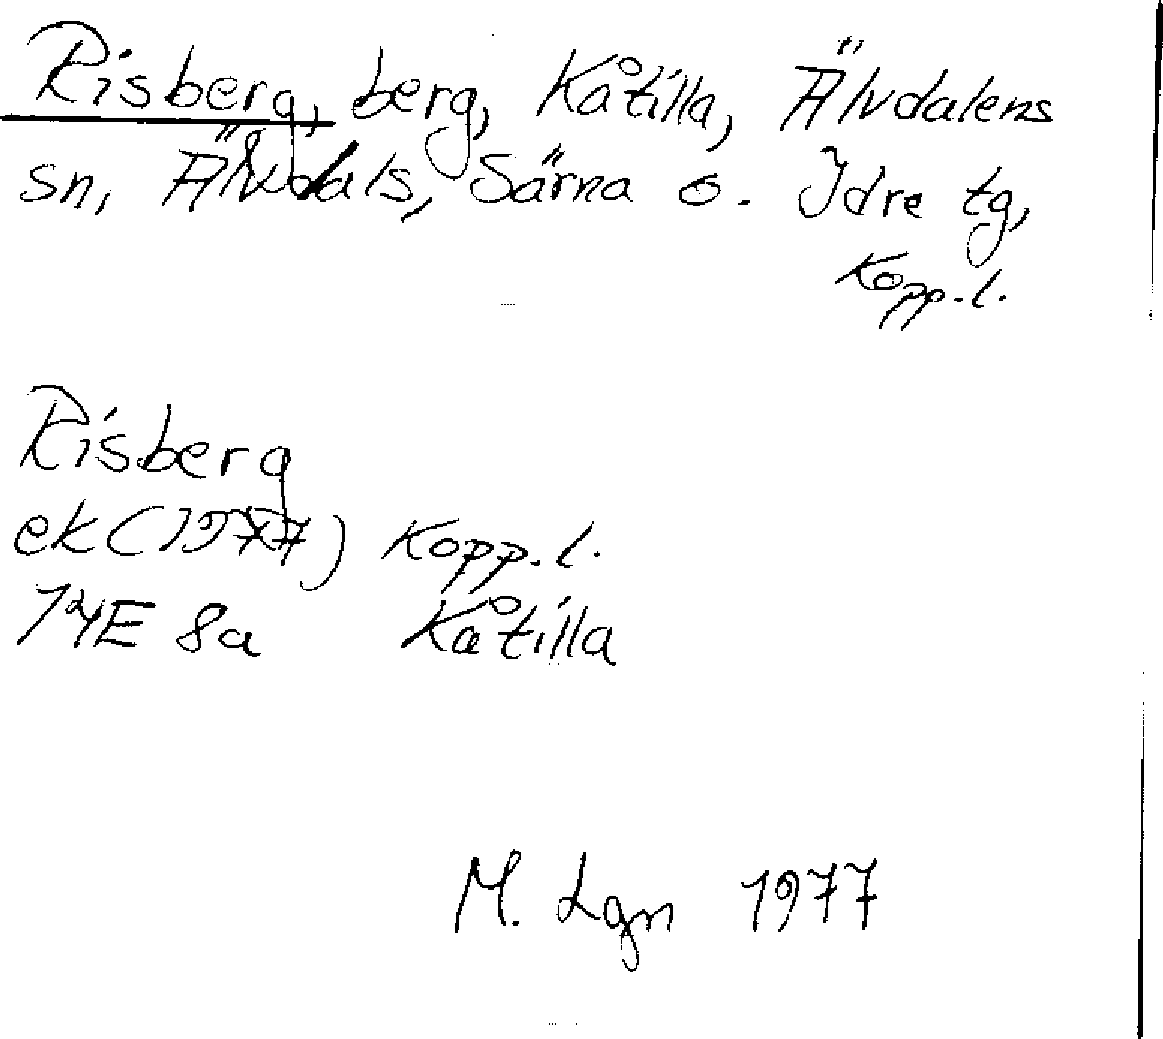 Risberg, berg, Kåtilla, Älvdalens
sn, Älvdals, Särna o. Idre tg,
Kopp.l.
Risberg
ek (1977) Kopp.l.
14E 8a Kåtilla
M. Lgn 1977